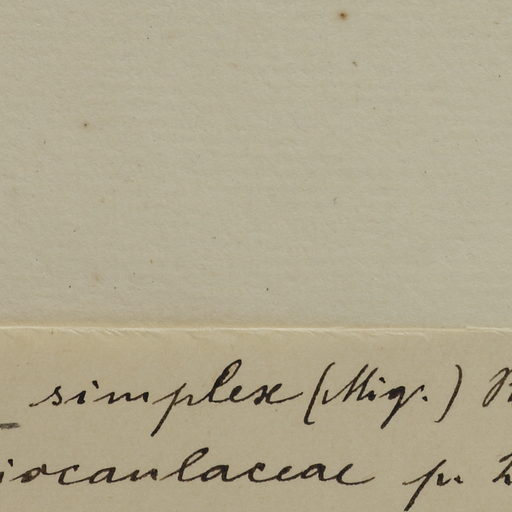 simplex (Miq.)
iocaulaceae p.